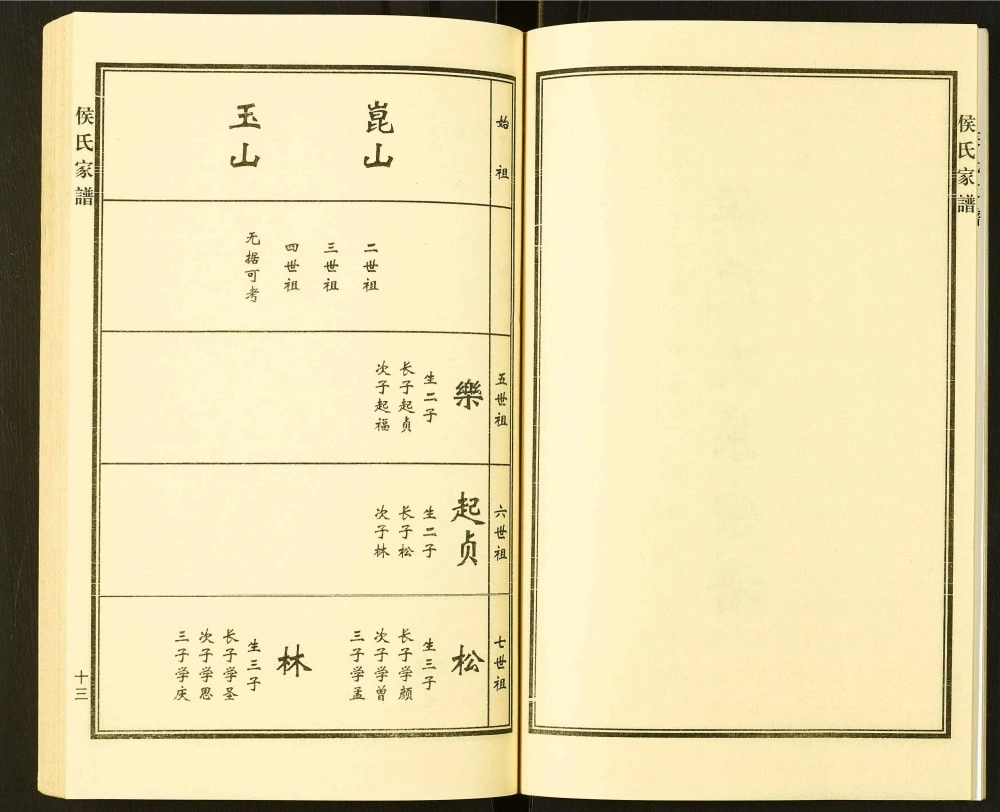 侯氏家譜
始祖
崑山
玉山
二世祖
三世祖
四世祖
无据可考
五世祖
樂
生二子
长子起贞
次子起福
六世祖
起贞
生二子
长子松
次子林
七世祖
松
生三子
长子学颜
次子学曾
三子学孟
林
生三子
长子学圣
次子学思
三子学庆
侯氏家譜
十三